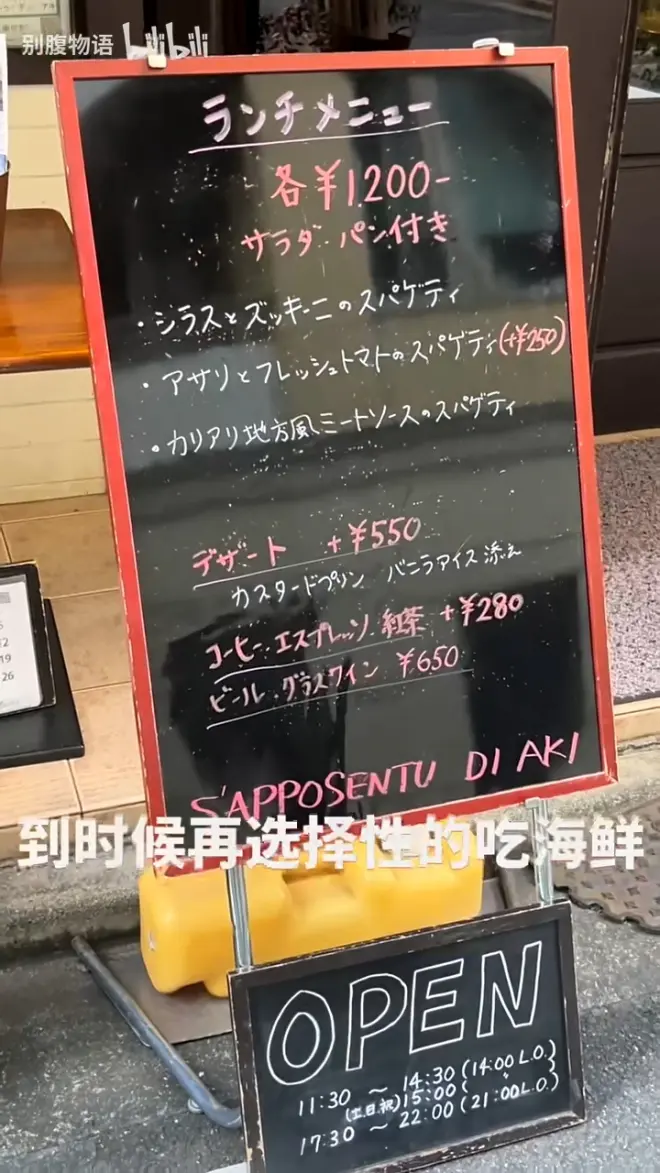 别腹物语 bilibili
ランチメニュー
各¥1.200-
サラダ パン付き
・シラスとズッキーニのスパゲティ
・アサリとフレッシュトマトのスパゲティ(+¥250)
・カリアリ地方風ミートソースのスパゲティ
デザート +¥550
カスタードプリン バニラアイス添え
コーヒー.エスプレッソ.紅茶 +¥280
ビール.グラスワイン ¥650
S'APPOSENTU DI AKI
到时候再选择性的吃海鲜
OPEN
11:30 ~ 14:30 (14:00 L.O.)
(土.日.祝)15:00 ( 〃 )
17:30 ~ 22:00 (21:00 L.O.)